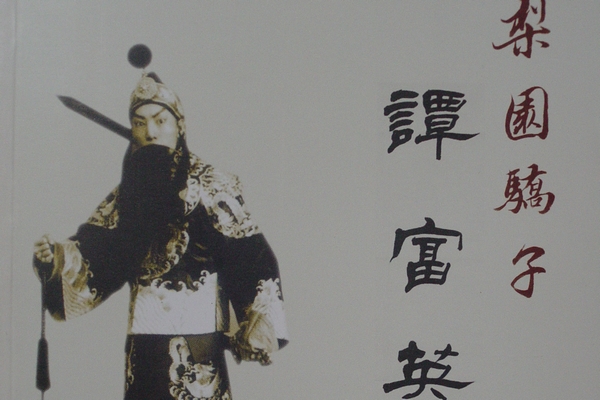 梨園驕子
譚富英